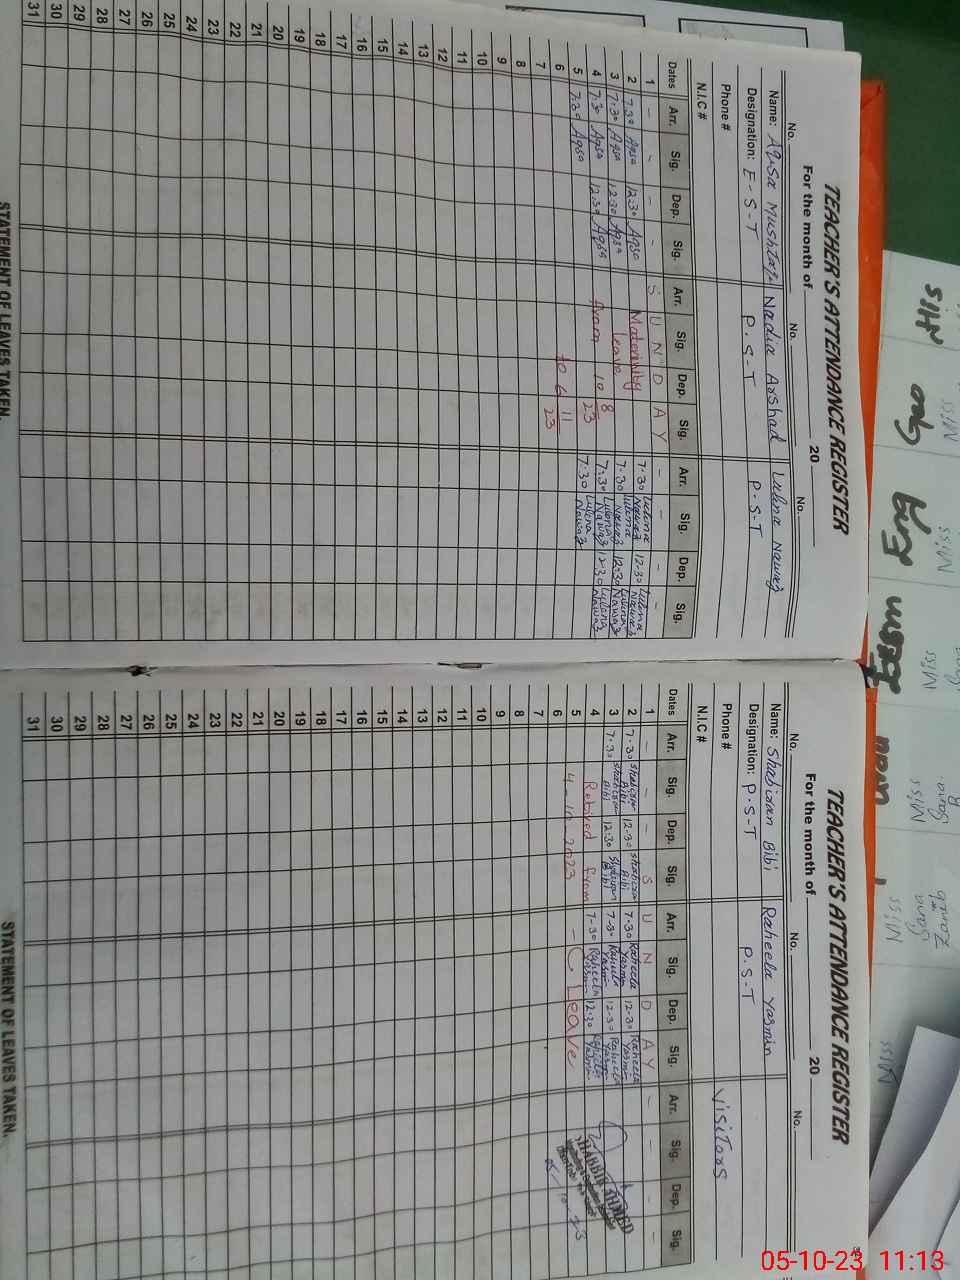 TEACHER'S ATTENDANCE REGISTER
For the month of 20
No. No. No.
Name: Aqsa Mushtaq Nadia Arshad Lubna Nawaz
Designation: E-S-T P.S-T P.S-T
Phone #
N.I.C #
Dates Arr. Sig. Dep. Sig. Arr. Sig. Dep. Sig. Arr. Sig. Dep. Sig.
1 - - - - S U N D A Y - - - -
2 7.30 Aqsa 12.30 Aqsa Maternity 7.30 Lubna Nawaz 12.30 Lubna Nawaz
3 7.30 Aqsa 12.30 Aqsa Leave 7.30 Lubna Nawaz 12.30 Lubna Nawaz
4 7.30 Aqsa 12.30 Aqsa from 10 8 23 7.30 Lubna Nawaz 12.30 Lubna Nawaz
5 7.30 Aqsa 7.30 Lubna Nawaz
6 to 6 11 23
7
8
9
10
11
12
13
14
15
16
17
18
19
20
21
22
23
24
25
26
27
28
29
30
31
STATEMENT OF LEAVES TAKEN.
TEACHER'S ATTENDANCE REGISTER
For the month of 20
No. No. No.
Name: Bibi Raheela Yasmin
Designation: P.S-T P.S-T
Phone # Visitors
N.I.C #
Dates Arr. Sig. Dep. Sig. Arr. Sig. Dep. Sig. Arr. Sig. Dep. Sig.
1 - - - S U N D A Y - - - -
2 7.30 Bibi 12.30 Bibi 7.30 Raheela Yasmin 12.30 Raheela Yasmin
3 7.30 Bibi 12.30 Bibi 7.30 Raheela Yasmin 12.30 Raheela Yasmin
4 Retired from 7.30 Raheela Yasmin 12.30 Raheela Yasmin
5 4-10-2023 - Leave
6
7
8
9
10
11
12
13
14
15
16
17
18
19
20
21
22
23
24
25
26
27
28
29
30
31
SHABBIR AHMED
05-10-23
STATEMENT OF LEAVES TAKEN.
His
Geo
Eng
Miss
Miss
Miss
Miss
Sana
Miss
Sana
Zanib
Miss
05-10-23 11:13